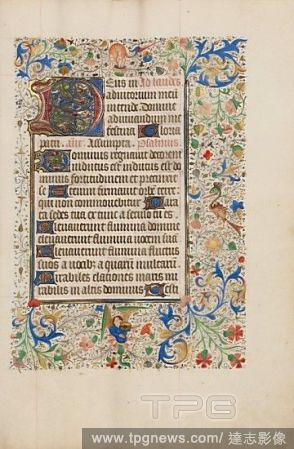 Deus in Ad laudes
adiutorium meu
intende Domine
ad adiuvandum me
festina Gloria
patri Assumpta Psalmus
Dominus regnavit decorem
indutus est indutus est do
minus fortitudinem et precinxit
se Etenim firmavit orbe terre
qui non commovebitur Para
ta sedes tua ex tunc a seculo tu es
Elevaverunt flumina domine
elevaverunt flumina vocem sua
Elevaverunt flumina fluctus
suos a vocib aquarum multaru
Mirabiles elationes maris mi
rabilis in altis dominus Testi
TPG
www.tpgnews.com/達志影像